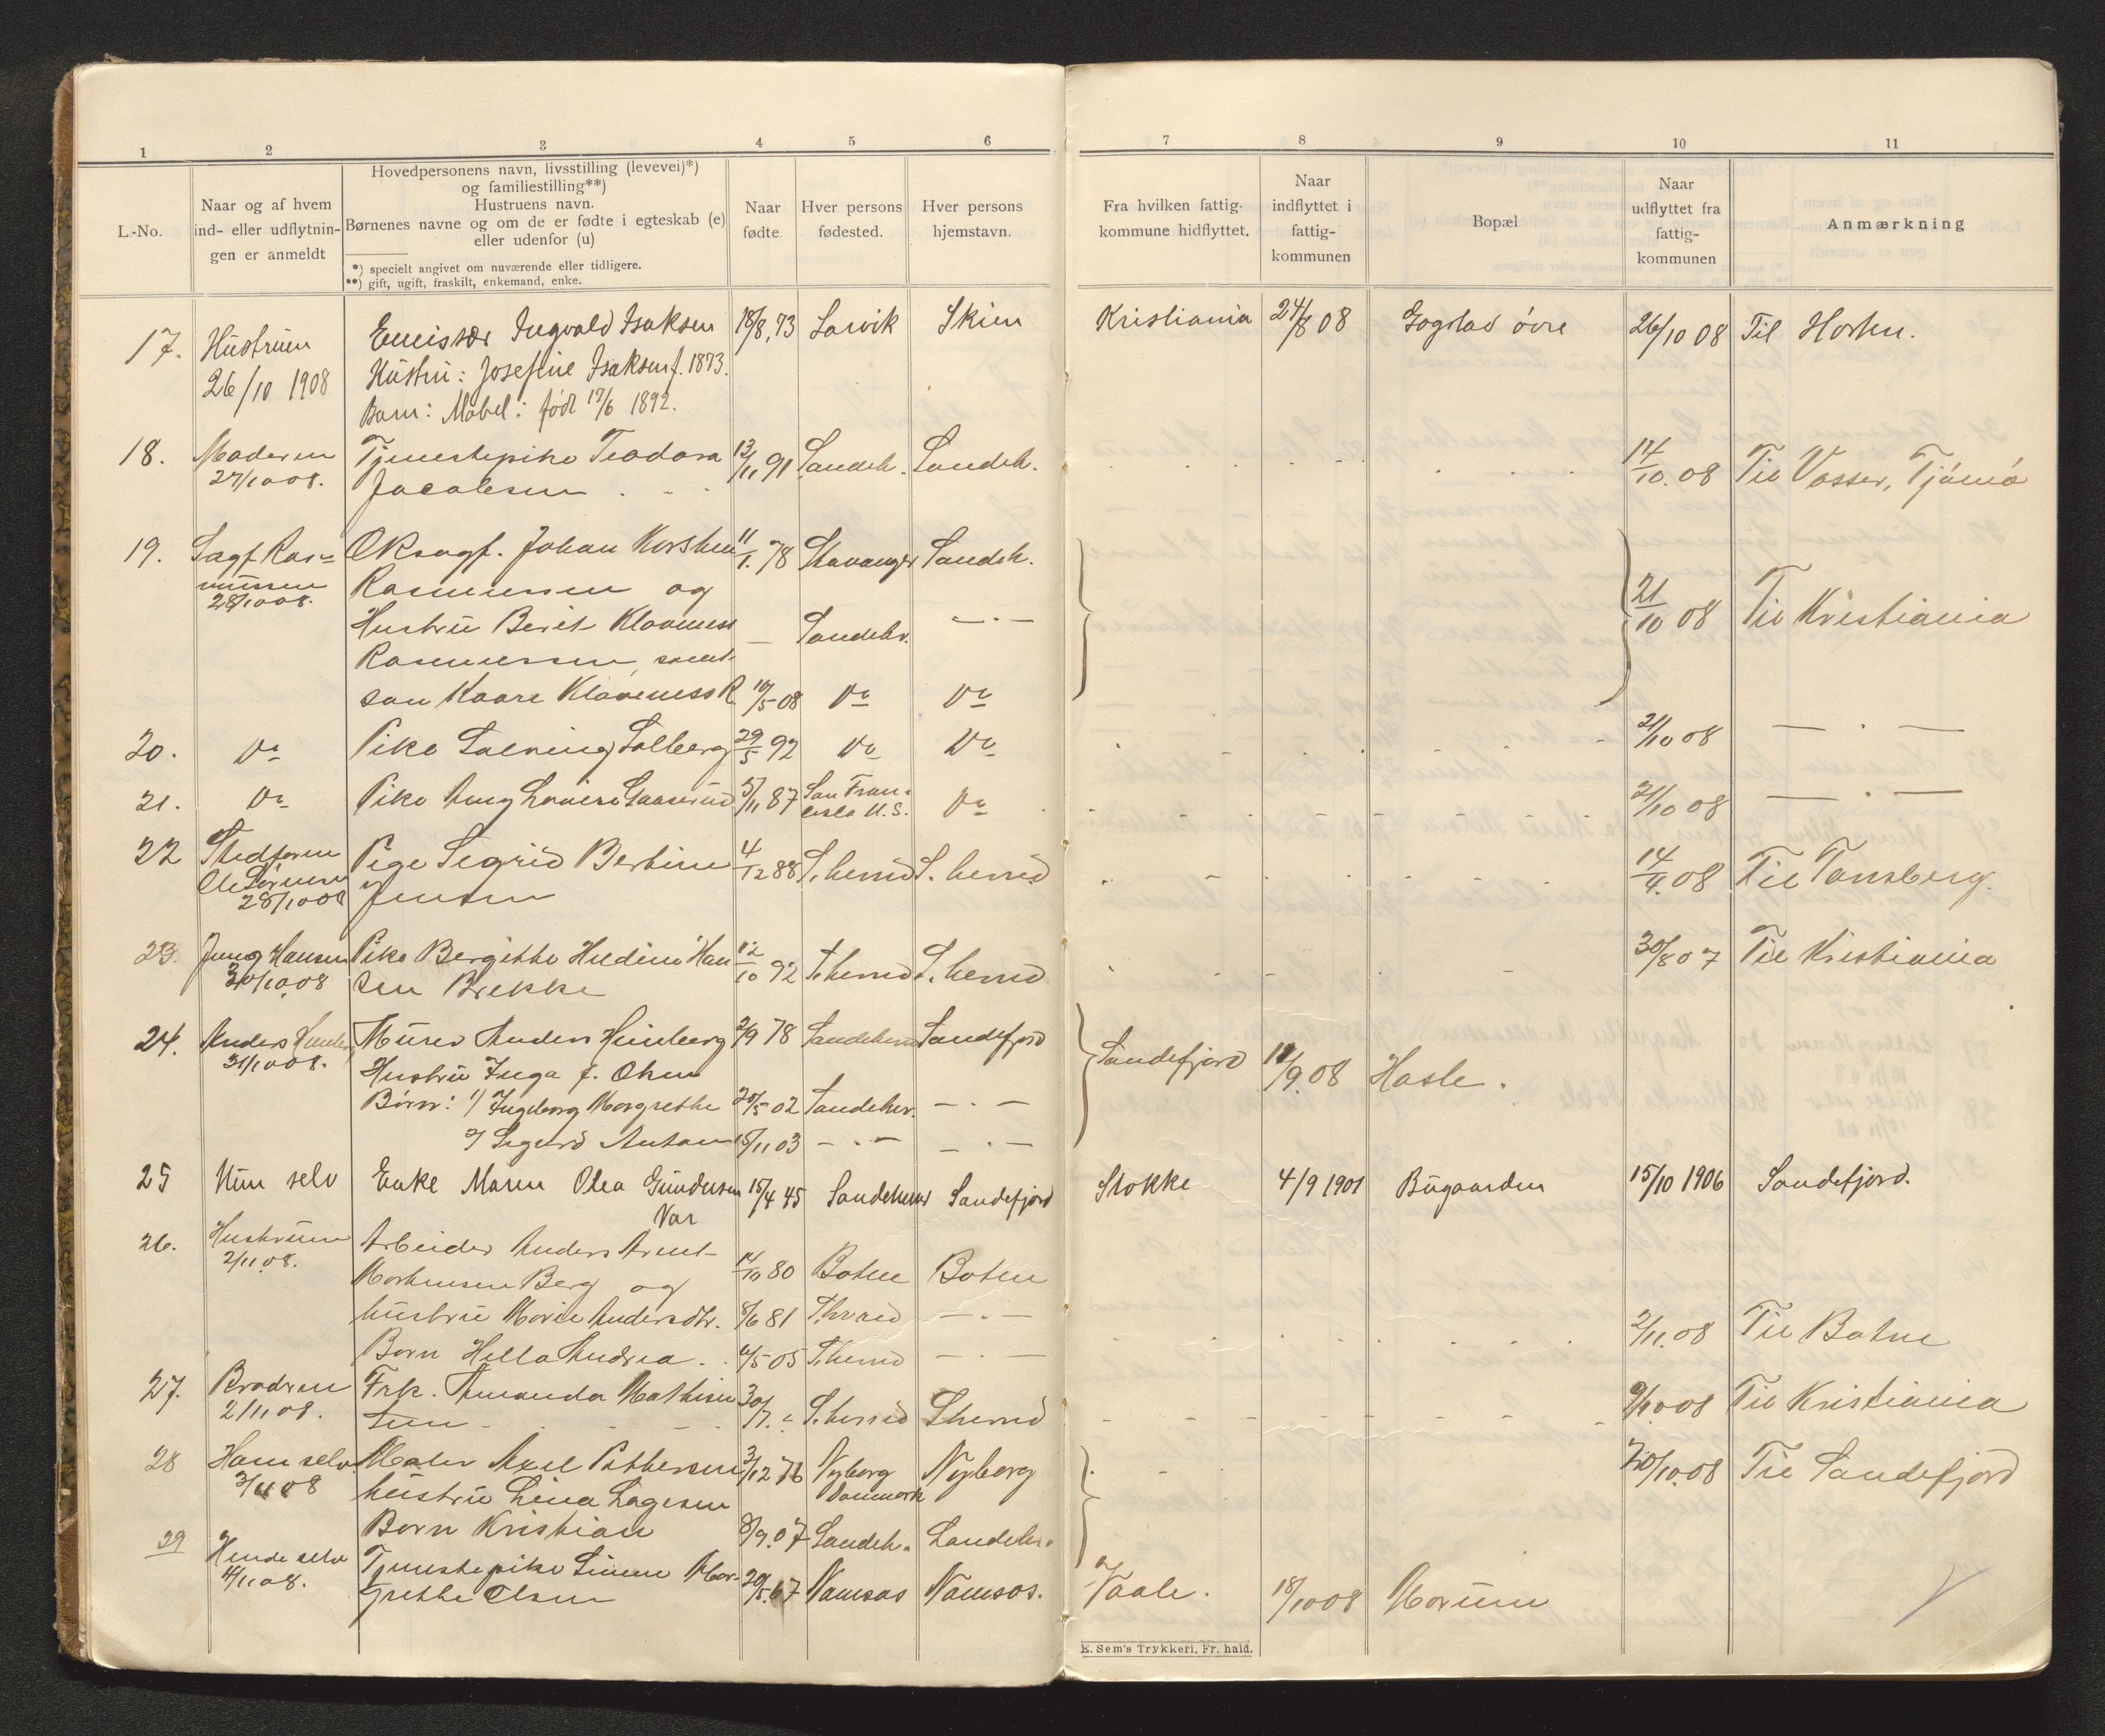 1 2 3 4 5 6 7 8 9 10 11
L.-No.
Naar og af hvem
ind- eller udflytnin-
gen er anmeldt
Hovedpersonens navn, livsstilling (levevei)*)
og familiestilling**)
Hustruens navn.
Børnenes navne og om de er fødte i egteskab (e)
eller udenfor (u)
*) specielt angivet om nuværende eller tidligere.
**) gift, ugift, fraskilt, enkemand, enke.
Naar
fødte.
Hver persons
fødested.
Hver persons
hjemstavn.
Fra hvilken fattig-
kommune hidflyttet.
Naar
indflyttet i
fattig-
kommunen
Bopæl
Naar
udflyttet fra
fattig-
kommunen
Anmærkning
17. Hustruen Emissær Ingvald Isaksen 18/8,73 Larvik Skien Kristiania 24/8 08 Gogstad övre 26/10 08 Til Horten.
26/10 1908 Hustru: Josefine Isaksen f. 1873.
Barn: Mabel: född 17/6 1892.
18. Moderen Tjenestepike Teodora 13/11 91 Sandeh. Sandeh. 14/10.08 Til Vasser, Tjömö
27/10 08. Jacobsen
19. Sagf. Ras= O.R.sagf. Johan Korshen 11/1. 78 Stavanger Sandeh.
mussen Rasmussen og
28/10 08. Hustru Berit Klavness — Sandehr. — . — 21/10 08 Til Kristiania
Rasmussen, samt
søn Kaare Klaveness R. 10/5 08 Do Do
20. Do Pike Solberg 29/5 92 Do Do 21/10 08 — . —
21. Do Pike Amy Lovise 5/11 87 San Fran- Do 21/10 08 — . —
cisco U.S.
22 Stedfaren Pige Sigrid Bertine 4/12 88 S.herred S. herred 14/4.08 Til Tønsberg.
Ole Sörensen Jensen
28/10 08
23. Hansen Pike Bergitte Hildine Han 12/10 92 S.herred S. herred 30/8 07 Til Kristiania
30/10.08 sen Brekke
24. Anders Murer Anders Heimberg 2/9 78 Sandeherred Sandefjord
31/10 08. Hustru Inga f. Olsen Sandefjord 17/9.08 Hasle.
Börn: 1/ Ingeborg Margrethe 20/5 02 Sandeher. — . —
2/ Sigurd Anton 15/11 03 — . — — . —
25 Hun selv Enke Maren Olea Gundersen 15/4 45 Sandeherred Sandefjord Stokke 4/9 1901 Bugaarden 15/10 1906 Sandefjord.
Var
26. Hustruen Arbeider Anders Arent
2/11.08. Mortensen Berg og 14/10 80 Botne Botne
hustru Marie Andersdtr. 8/6 81 S.herred — . —
Barn Hella Andrea. 4/5 05 S.herred — . — 2/11.08 Til Botne
27. Brodren Frk. Amanda Mathisen 30/7. S.herred S.herred 9/10 08 Til Kristiania
2/11 08.
28 Ham selv Maler Axel Pettersen 3/12 76 Nyborg Nyborg 20/10.08 Til Sandefjord
3/11 08 hustru Lina Lagesen Danmark
Barn Kristian 8/9.07 Sandeh. Sandeh.
29 Hende selv Tjenestepike Mar-
4/11 08. grethe Olsen 20/5.67 Namsos Namsos. Vaale. 18/10 08 Morum
E. Sem's Trykkeri, Fr. hald.